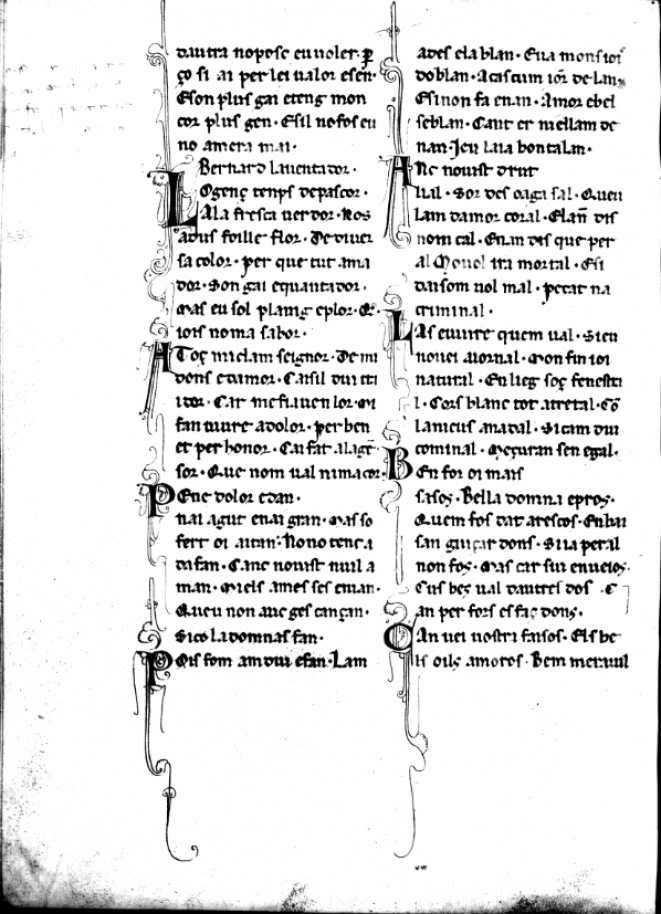 dautra noposc eu uoler. ꝑ
ço si ai per lei ualor esen.
Eson plus gai eteng mon
cor plus gen. Esil nofos eu
no amera mai.
Bernard lauentador.
LOgenç tenps depascor.
Lala fresca uerdor. Nos
adus foille flor. Dediuer
sa color. per que tut ama
dor. Son gai equantador.
Mas eu sol plaing eplor. 
iois noma sabor.
A Toç miclam seignor. De mi
dons edamor. Caisil dui tra
itor. Car mefiauen lor. Mi
fan uiure adolor. per ben
et per honor. Cai fat alage
sor. Que nom ual nimacor.
PEne dolor edan.
nai agut enai gran. Mas so
fert oi aitan. Nono tenc a
dafan. Canc nouist nuil a
man. Miels ames ses enian.
Queu non auc ges cançan.
Sico ladomnas fan.
POis fom amdui efan. Lam
ades ela blan. Eua mon ioi
doblan. Acascum ior delan
Esinon fa enan. Amor ebel
seblan. Cant er uiellam de
nan. Jeu laia bontalan.
ANc nouist drut
lial. Sor des oaga sal. Queu
lam damor coral. Elan dis
nom cal. Enan dis que per
al ira mortal. Esi
daisom uol mal. pecat na
criminal.
LAs euiure quem ual. Sieu
nouei aiornal. Mon fin ioi
natural. Enlieg soç fenestra
l. Cors blanc tot atretal. Co
laneus anadal. Sicam dui
cominal. Meçuran sen egal.
BEn for oi mais
sasos. Bella domna epros.
Quem fos dat arescos. Enbai
san guiçardons. Siia peral
non fos. Mas car sui enueios.
Cus beç ual dautres dos. C
an per fors es faç dons.
CAn uei uostra faisos. Els be
ls oils amoros. Bem merauil